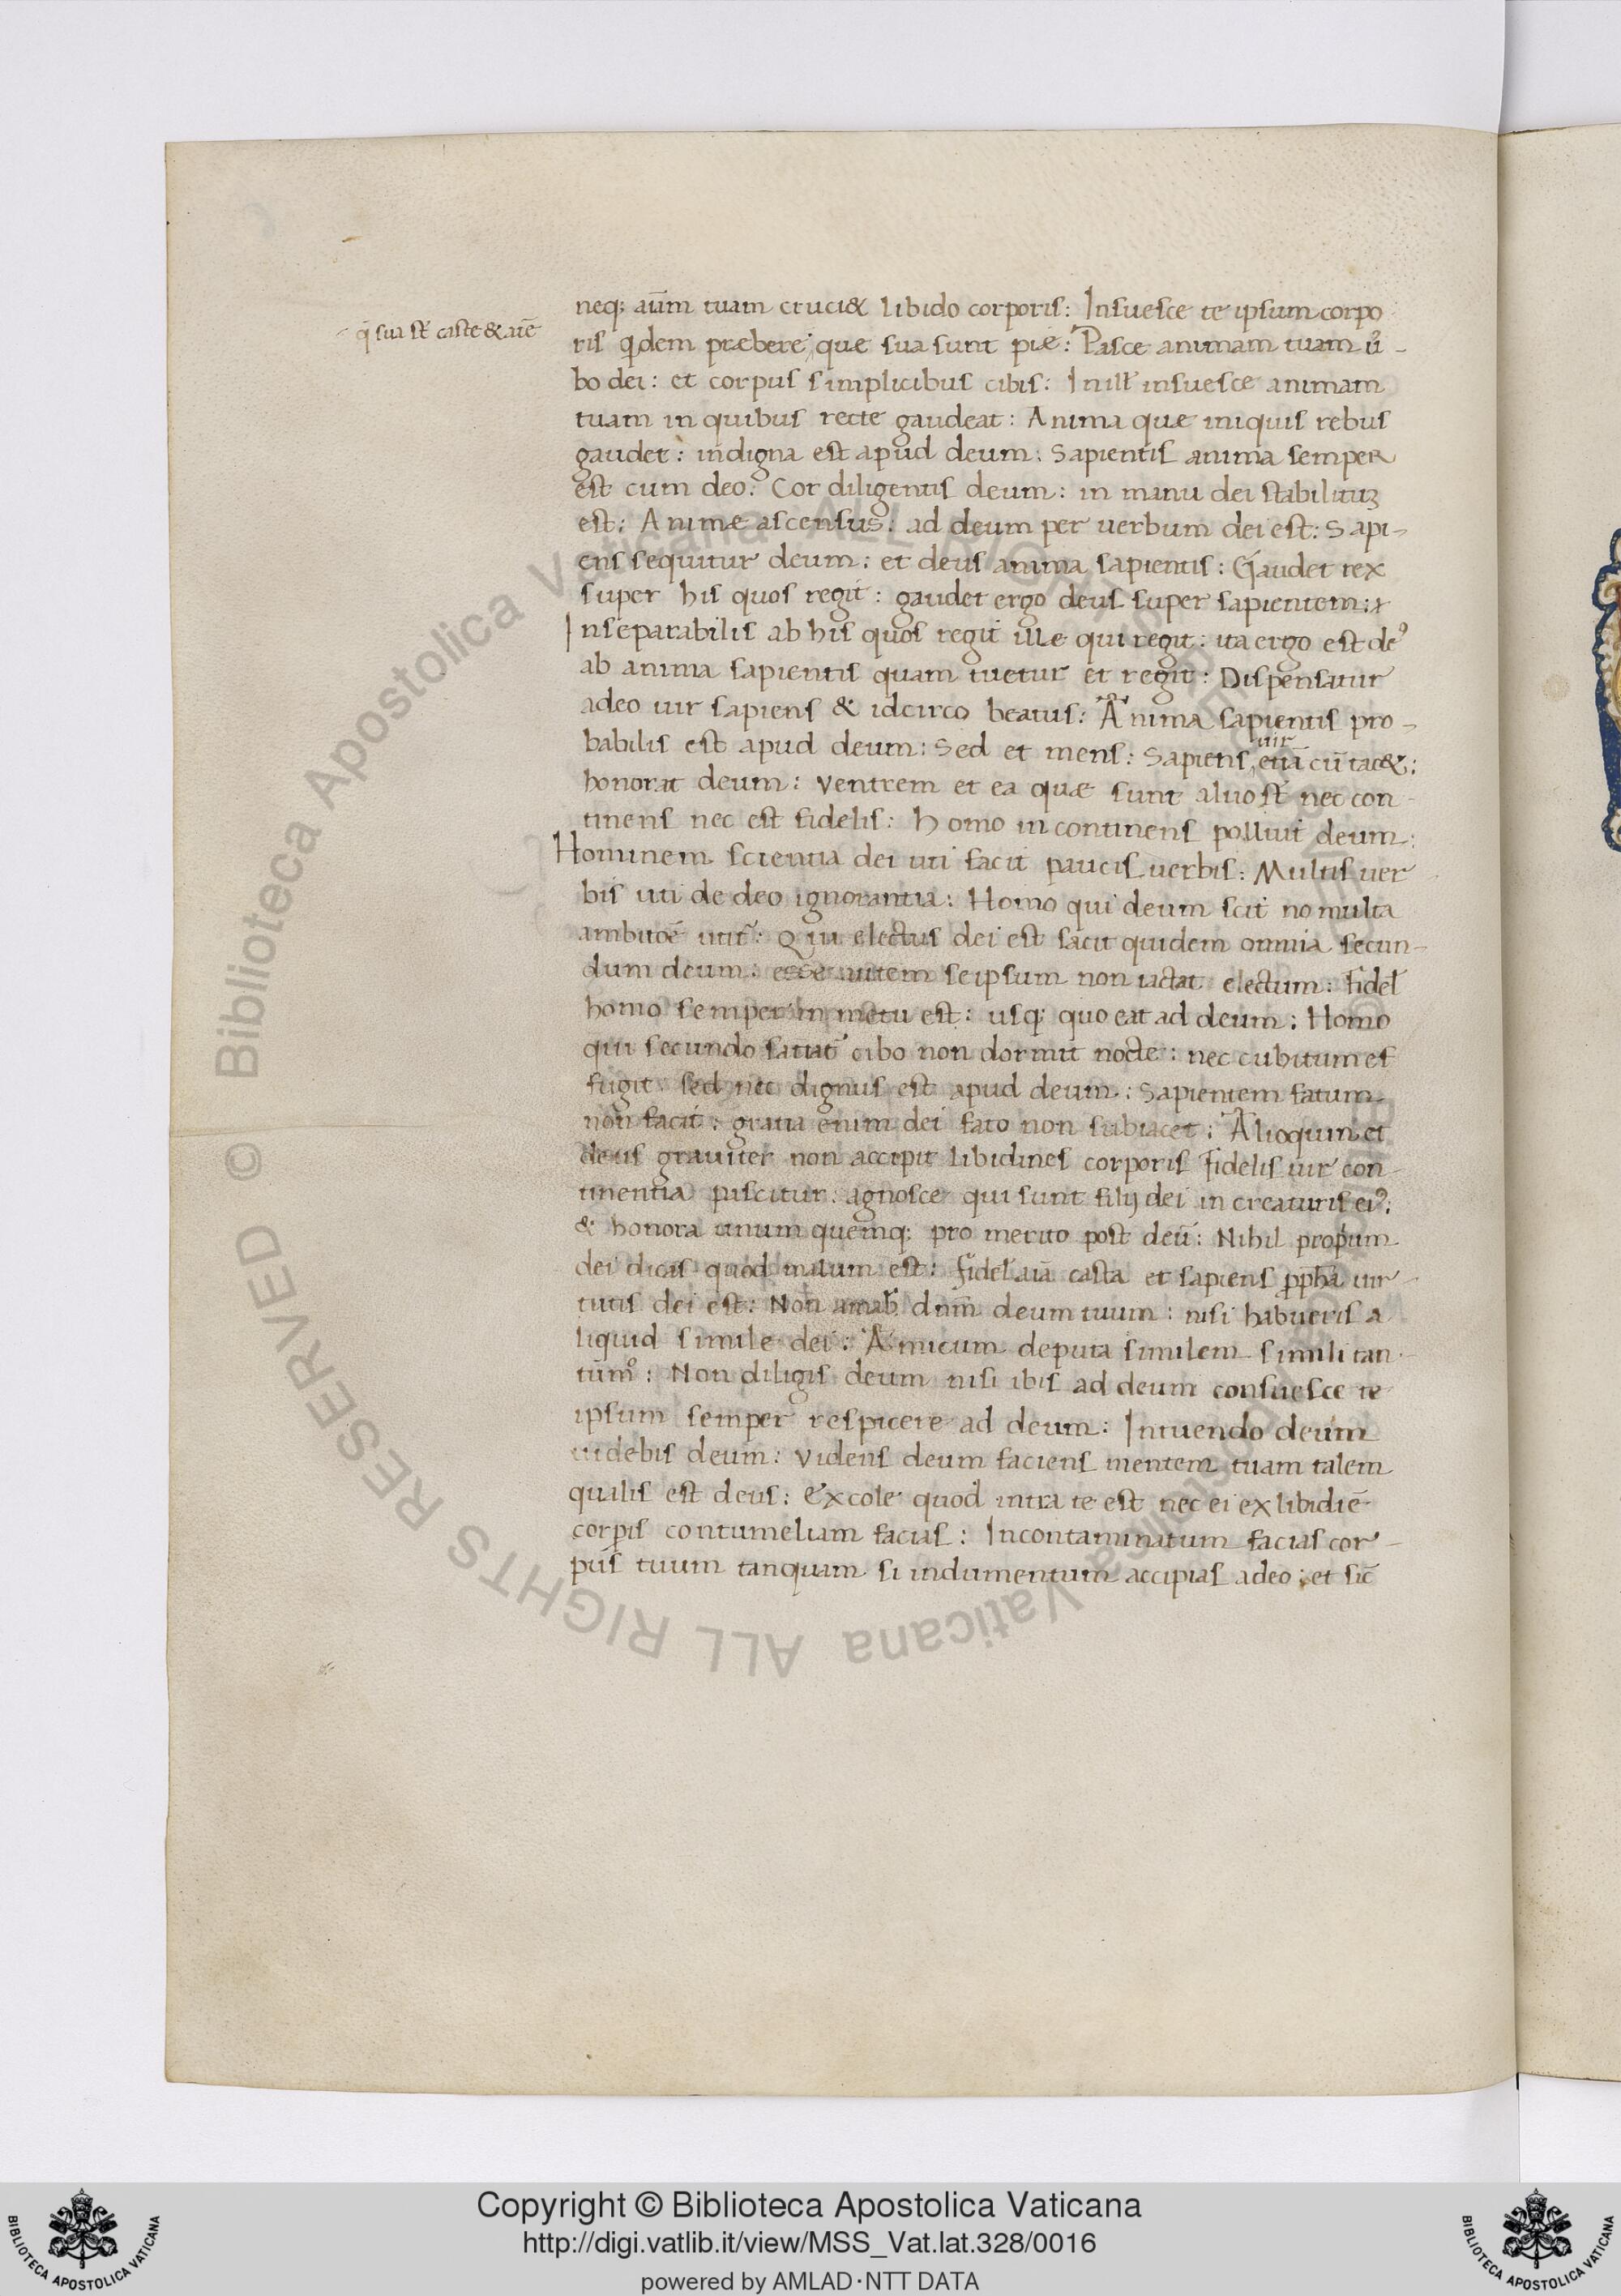 neq; aīam tuam cruci& libido corporis: Insuesce te ipsum corpo
q̄ sua st̄ caste & aīe
ris qdem præbere que sua sunt pie: Pasce animam tuam ū-
bo dei: et corpus simplicibus cibis: In ill̄ insuesce animam
tuam in quibus recte gaudeat: Anima quæ iniquis rebus
gaudet: indigna est apud deum: Sapientis anima semper
est cum deo: Cor diligentis deum: in manu dei stabilitum
est: Animæ ascensus: ad deum per uerbum dei est: Sapi-
ens sequitur deum: et deus anima sapientis: Gaudet rex
super his quos regit: gaudet ergo deus super sapientem:
Inseparabilis ab his quos regit ille qui regit: ita ergo est de⁹
ab anima sapientis quam tuetur et regit: Dispensatur
adeo uir sapiens & idcirco beatus: Anima sapientis pro-
babilis est apud deum: Sed et mens: Sapiens uir etiā cū tac&:
honorat deum: Ventrem et ea quæ sunt aluo st̄ nec con-
tinens nec est fidelis: Homo incontinens polluit deum:
Hominem scientia dei uti facit paucis uerbis: Multis uer
bis uti de deo ignorantia: Homo qui deum scit no multa
ambitōē utit̄: Qui electus dei est facit quidem omnia secun-
dum deum: esse autem seipsum non iactat electum: Fidel̄
homo semper in metu est: usq; quo eat ad deum: Homo
qui secundo satiat̄ cibo non dormit nocte: nec cubitum ef
fugit sed nec dignus est apud deum: Sapientem fatum
non facit: gratia enim dei fato non subiacet: Alioquin et
deus grauiter non accipit libidines corporis Fidelis uir con-
tinentia pascitur: agnosce qui sunt filij dei in creaturis ei⁹:
& honora unum quemq; pro merito post deū: Nihil propium
dei dicas quod malum est: Fidel̄ aīa casta et sapiens pp̄ha uir-
tutis dei est: Non amab̄ dn̄m deum tuum: nisi habueris a
liquid simile dei: Amicum deputa similem simili tan-
tūmº: Non diligis deum nisi ibis ad deum consuesce te
ipsum semper respicere ad deum: Intuendo deum
uidebis deum: Videns deum faciens mentem tuam talem
qualis est deus: Excole quod intra te est nec ei ex libidiē
corpis contumeliam facias: Incontaminatum facias cor-
pus tuum tanquam si indumentum accipias adeo: et sic̄
© Biblioteca Apostolica Vaticana ALL RIGHTS RESERVED
Copyright © Biblioteca Apostolica Vaticana
http://digi.vatlib.it/view/MSS_Vat.lat.328/0016
powered by AMLAD·NTT DATA
BIBLIOTECA APOSTOLICA VATICANA
BIBLIOTECA APOSTOLICA VATICANA